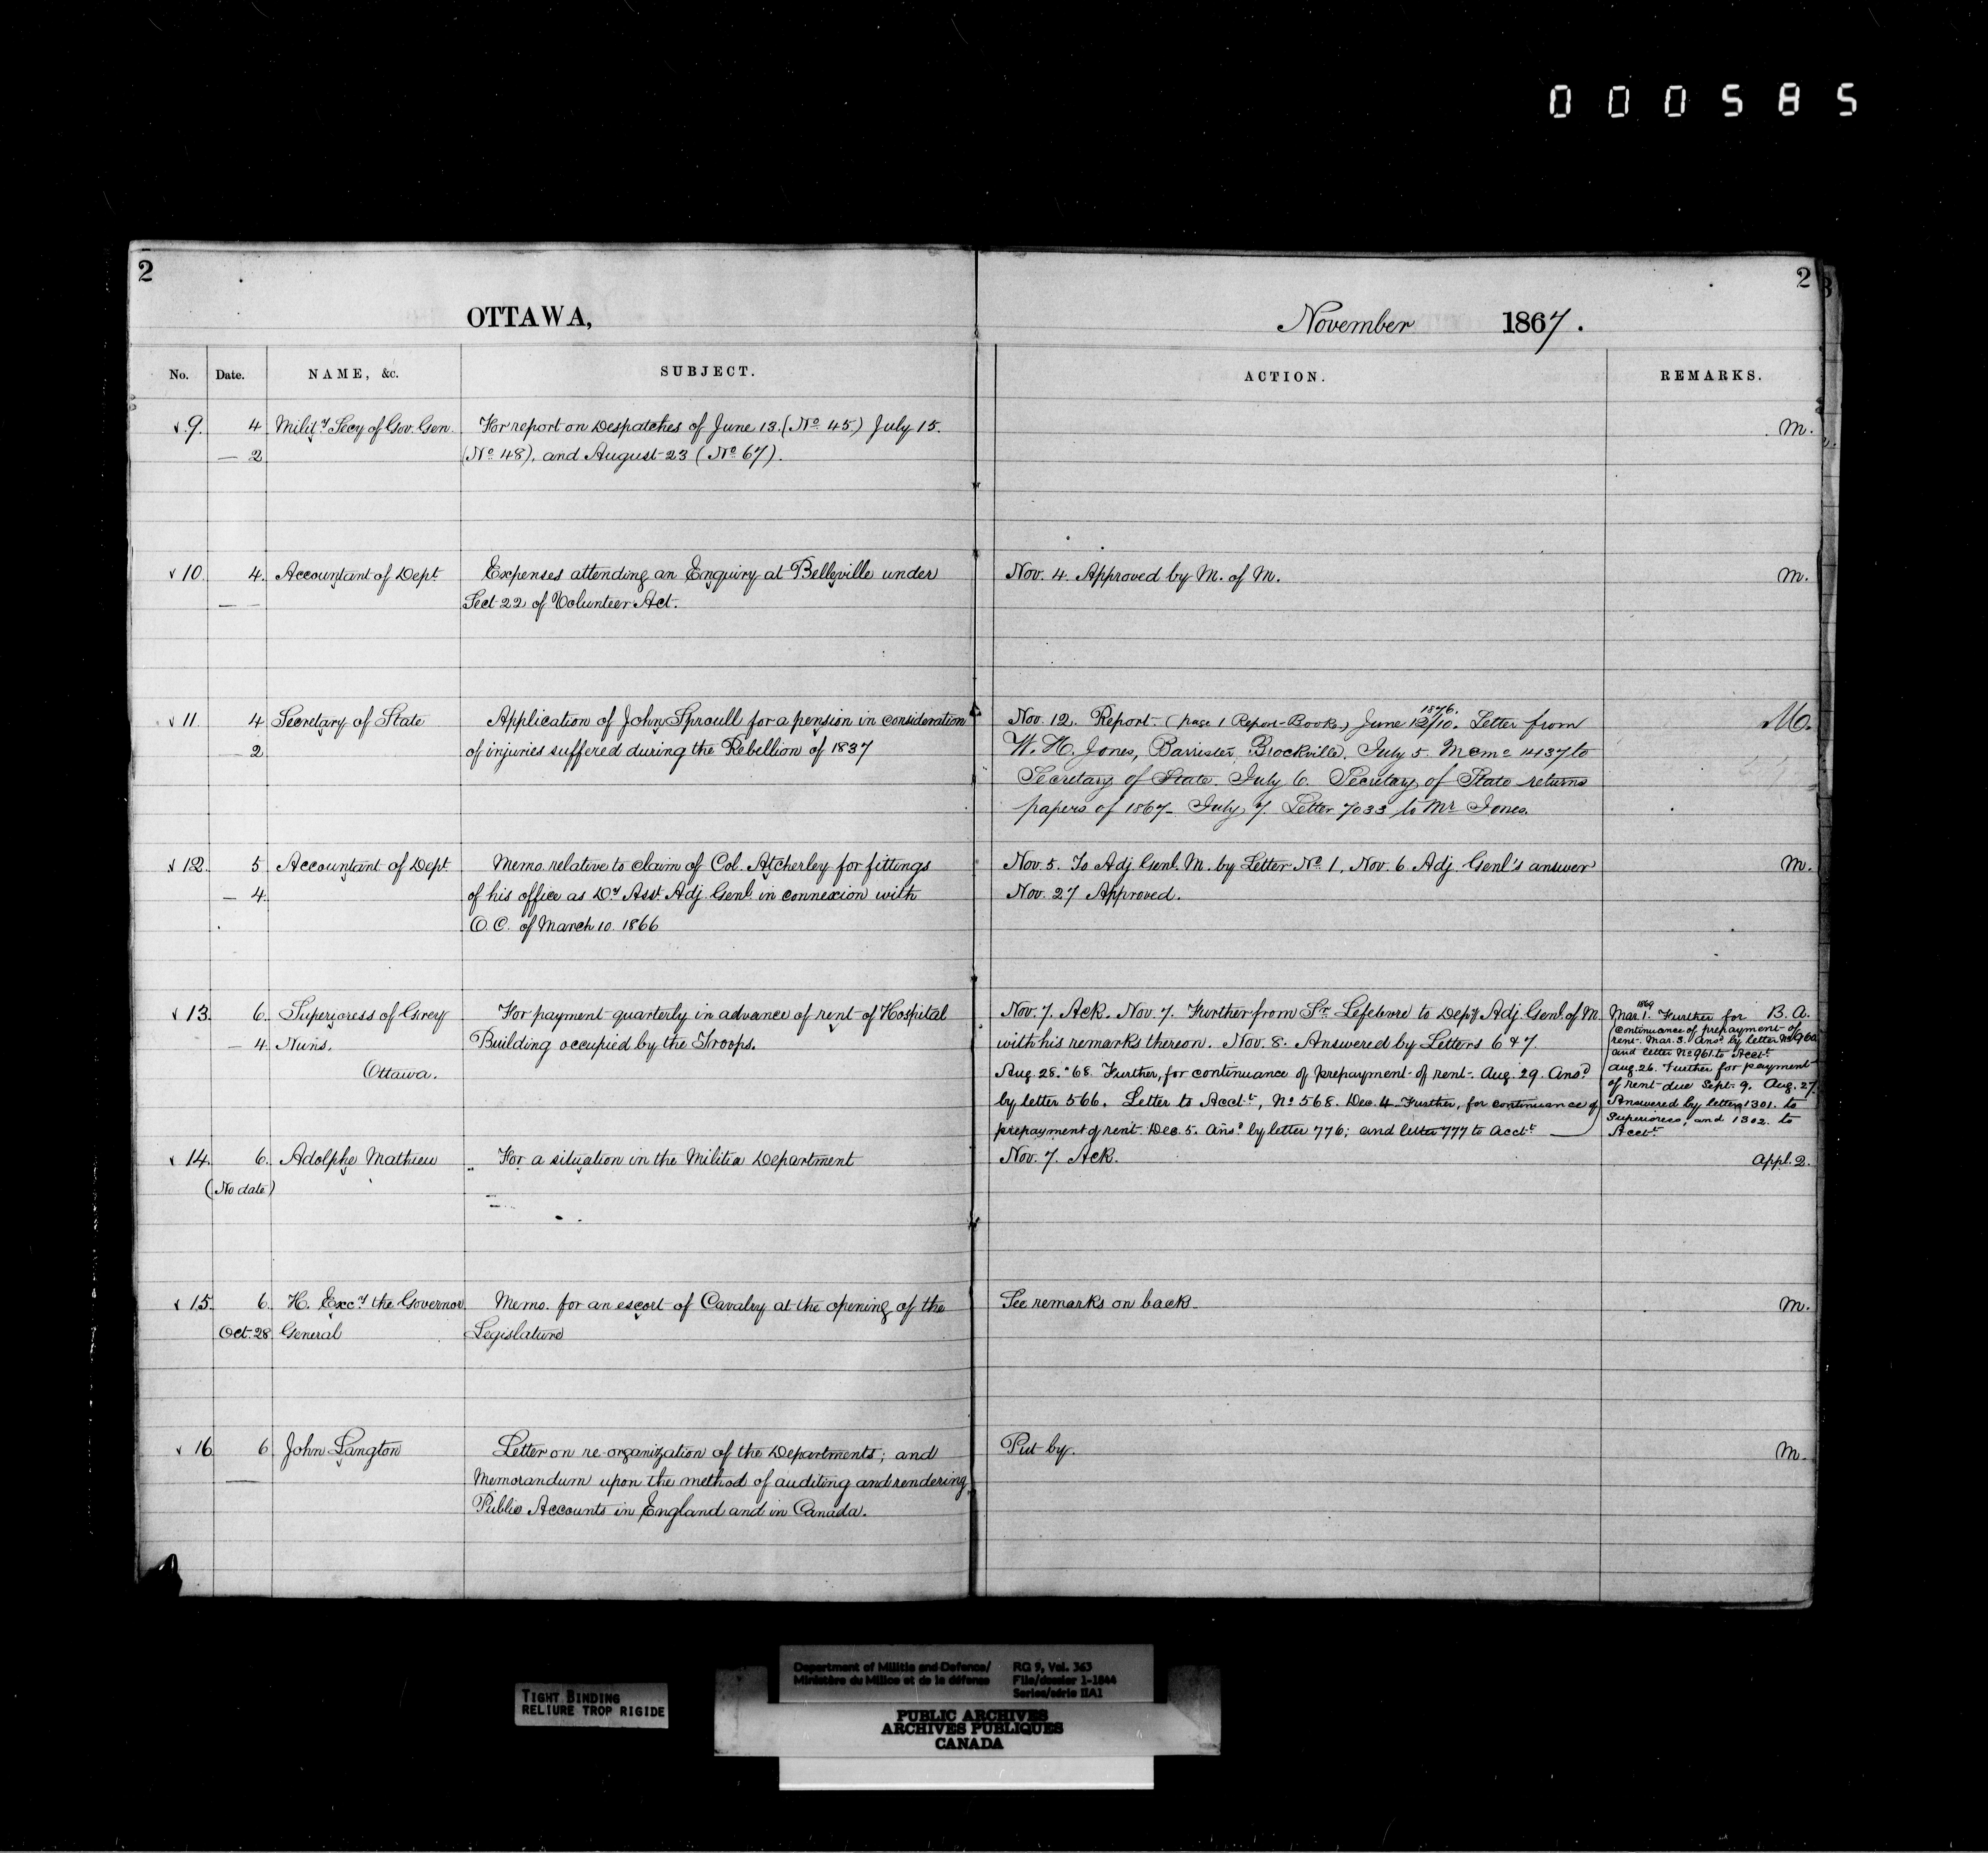 000585
2
2
OTTAWA,
November 1867.
No. Date. NAME, &c. SUBJECT. ACTION. REMARKS.
9. 4 Mility Secy of Gov. Gen. For report on Despatches of June 13. (No 45) July 15. M.
— 2 (No 48), and August 23 (No 67).
10. 4. Accountant of Dept Expenses attending an Enquiry at Belleville under Nov. 4. Approved by M. of M. M.
— — Sect 22 of Volunteer Act.
11. 4 Secretary of State Application of John Sproull for a pension in consideration Nov. 12. Report (page 1 Report-Book.) June 12/10. 1876. Letter from M.
— 2 of injuries suffered during the Rebellion of 1837 W. H. Jones, Barrister, Brockville. July 5. Memo 4137 to
Secretary of State. July 6. Secretary of State returns
papers of 1867. July 7. Letter 7033 to Mr Jones.
12. 5 Accountant of Dept. Memo. relative to claim of Col. Atcherley for fittings Nov. 5. To Adj. Genl. M. by Letter No 1, Nov. 6. Adj. Genl's answer M.
— 4. of his office as Dy Asst. Adj. Genl. in connexion with Nov. 27 Approved.
O. C. of March 10. 1866
13. 6. Superioress of Grey For payment quarterly in advance of rent of Hospital Nov. 7. Ack. Nov. 7. Further from Sr. Lefebvre to Depy Adj. Genl. of M.
— 4. Nuns. Building occupied by the Troops. with his remarks thereon. Nov. 8. Answered by Letters 6 & 7.
Ottawa. Aug. 28. '68. Further, for continuance of prepayment of rent. Aug. 29. Ansd
by letter 566. Letter to Acctt, No 568. Dec. 4. Further, for continuance of
prepayment of rent. Dec. 5. Ansd by letter 776; and letter 777 to Acctt
1869
Mar. 1. Further for B. A.
continuance of prepayment of
rent. Mar. 3. Ansd by letter No 960
and letter No 961 to Acctt
Aug. 26. Further for payment
of rent due Sept. 9. Aug. 27.
Answered by letter 1301. to
Superioress, and 1302. to
Acctt
14. 6. Adolphe Mathieu For a situation in the Militia Department Nov. 7. Ack. Appl. 2.
(No date)
15. 6. H. Excy the Governor Memo. for an escort of Cavalry at the opening of the See remarks on back. M.
Oct. 28 General Legislature
16 6 John Langton Letter on re-organization of the Departments; and Put by. M.
— Memorandum upon the method of auditing and rendering
Public Accounts in England and in Canada.
TIGHT BINDING
RELIURE TROP RIGIDE
Department of Militia and Defence/ RG 9, Vol. 363
Ministère du Milice et de la défense File/dossier 1-1844
Series/série IIA1
PUBLIC ARCHIVES
ARCHIVES PUBLIQUES
CANADA